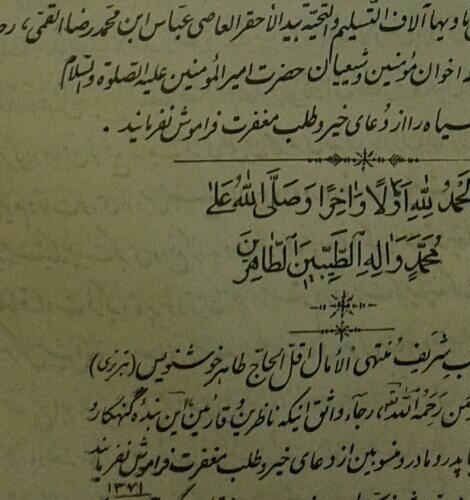 وبها آلاف التسلیم والتحیة بید الأحقر العاصی عباس ابن محمد رضا القمی،
اخوان مؤمنین و شیعیان حضرت امیرالمؤمنین علیه الصلوة والسلام
سیاه را از دعای خیر و طلب مغفرت فراموش نفرمایند .
لحمدُ لِلّهِ اَوَّلًا وَاخِرًا وَصَلَّی اللهُ عَلی
مُحَمَّدٍ وَالِهِ الطَّیِّبینَ الطّاهِرینَ
ب شریف مُنتهی الآمال اقل الحاج طاهر خوشنویس (تبریزی)
رَحِمَهُ الله، رجاء واثق اینکه ناظرین و قارئین این بندۀ گنهکار و
پدر و مادر و منسوبین از دعای خیر و طلب مغفرت فراموش نفرمایند
۱۳۷۱